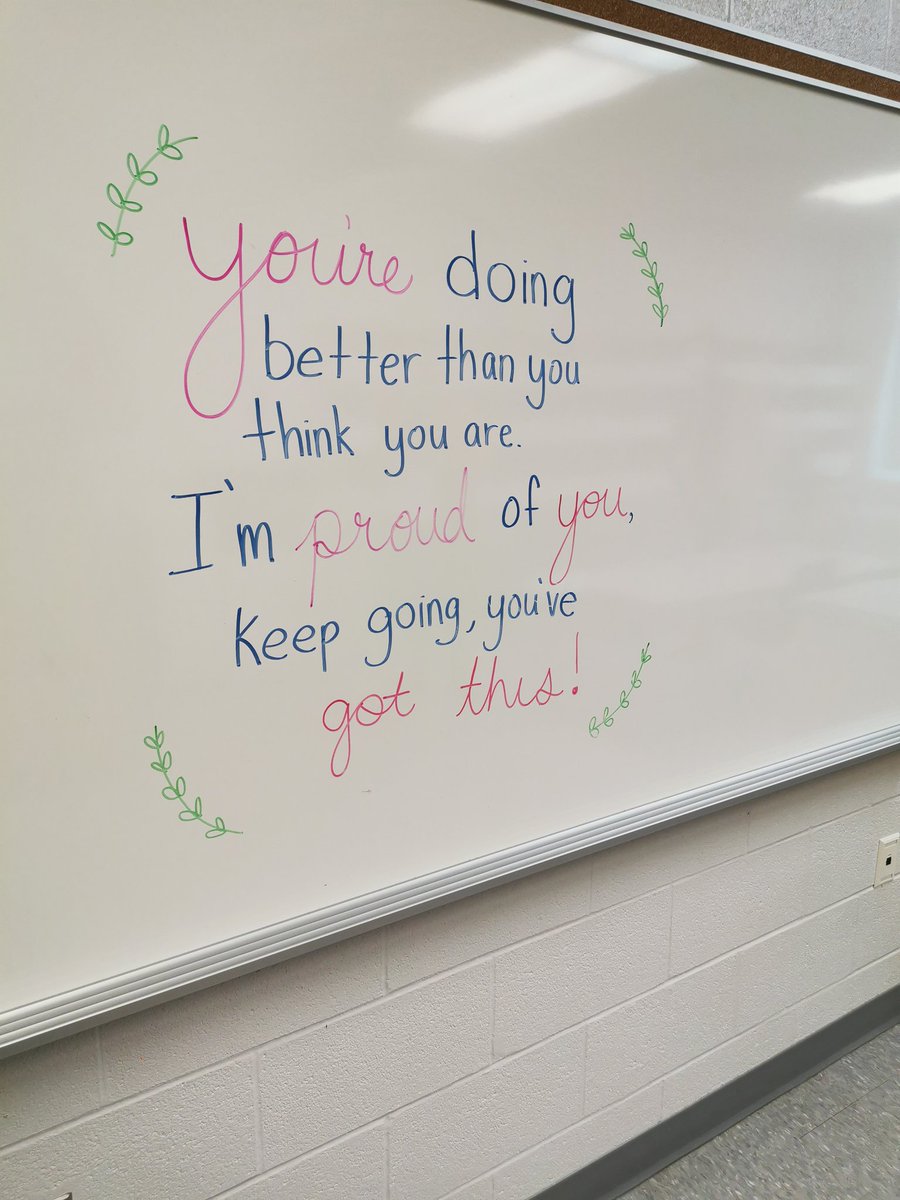 you're doing
better than you
think you are.
I'm proud of you,
keep going, you've
got this!